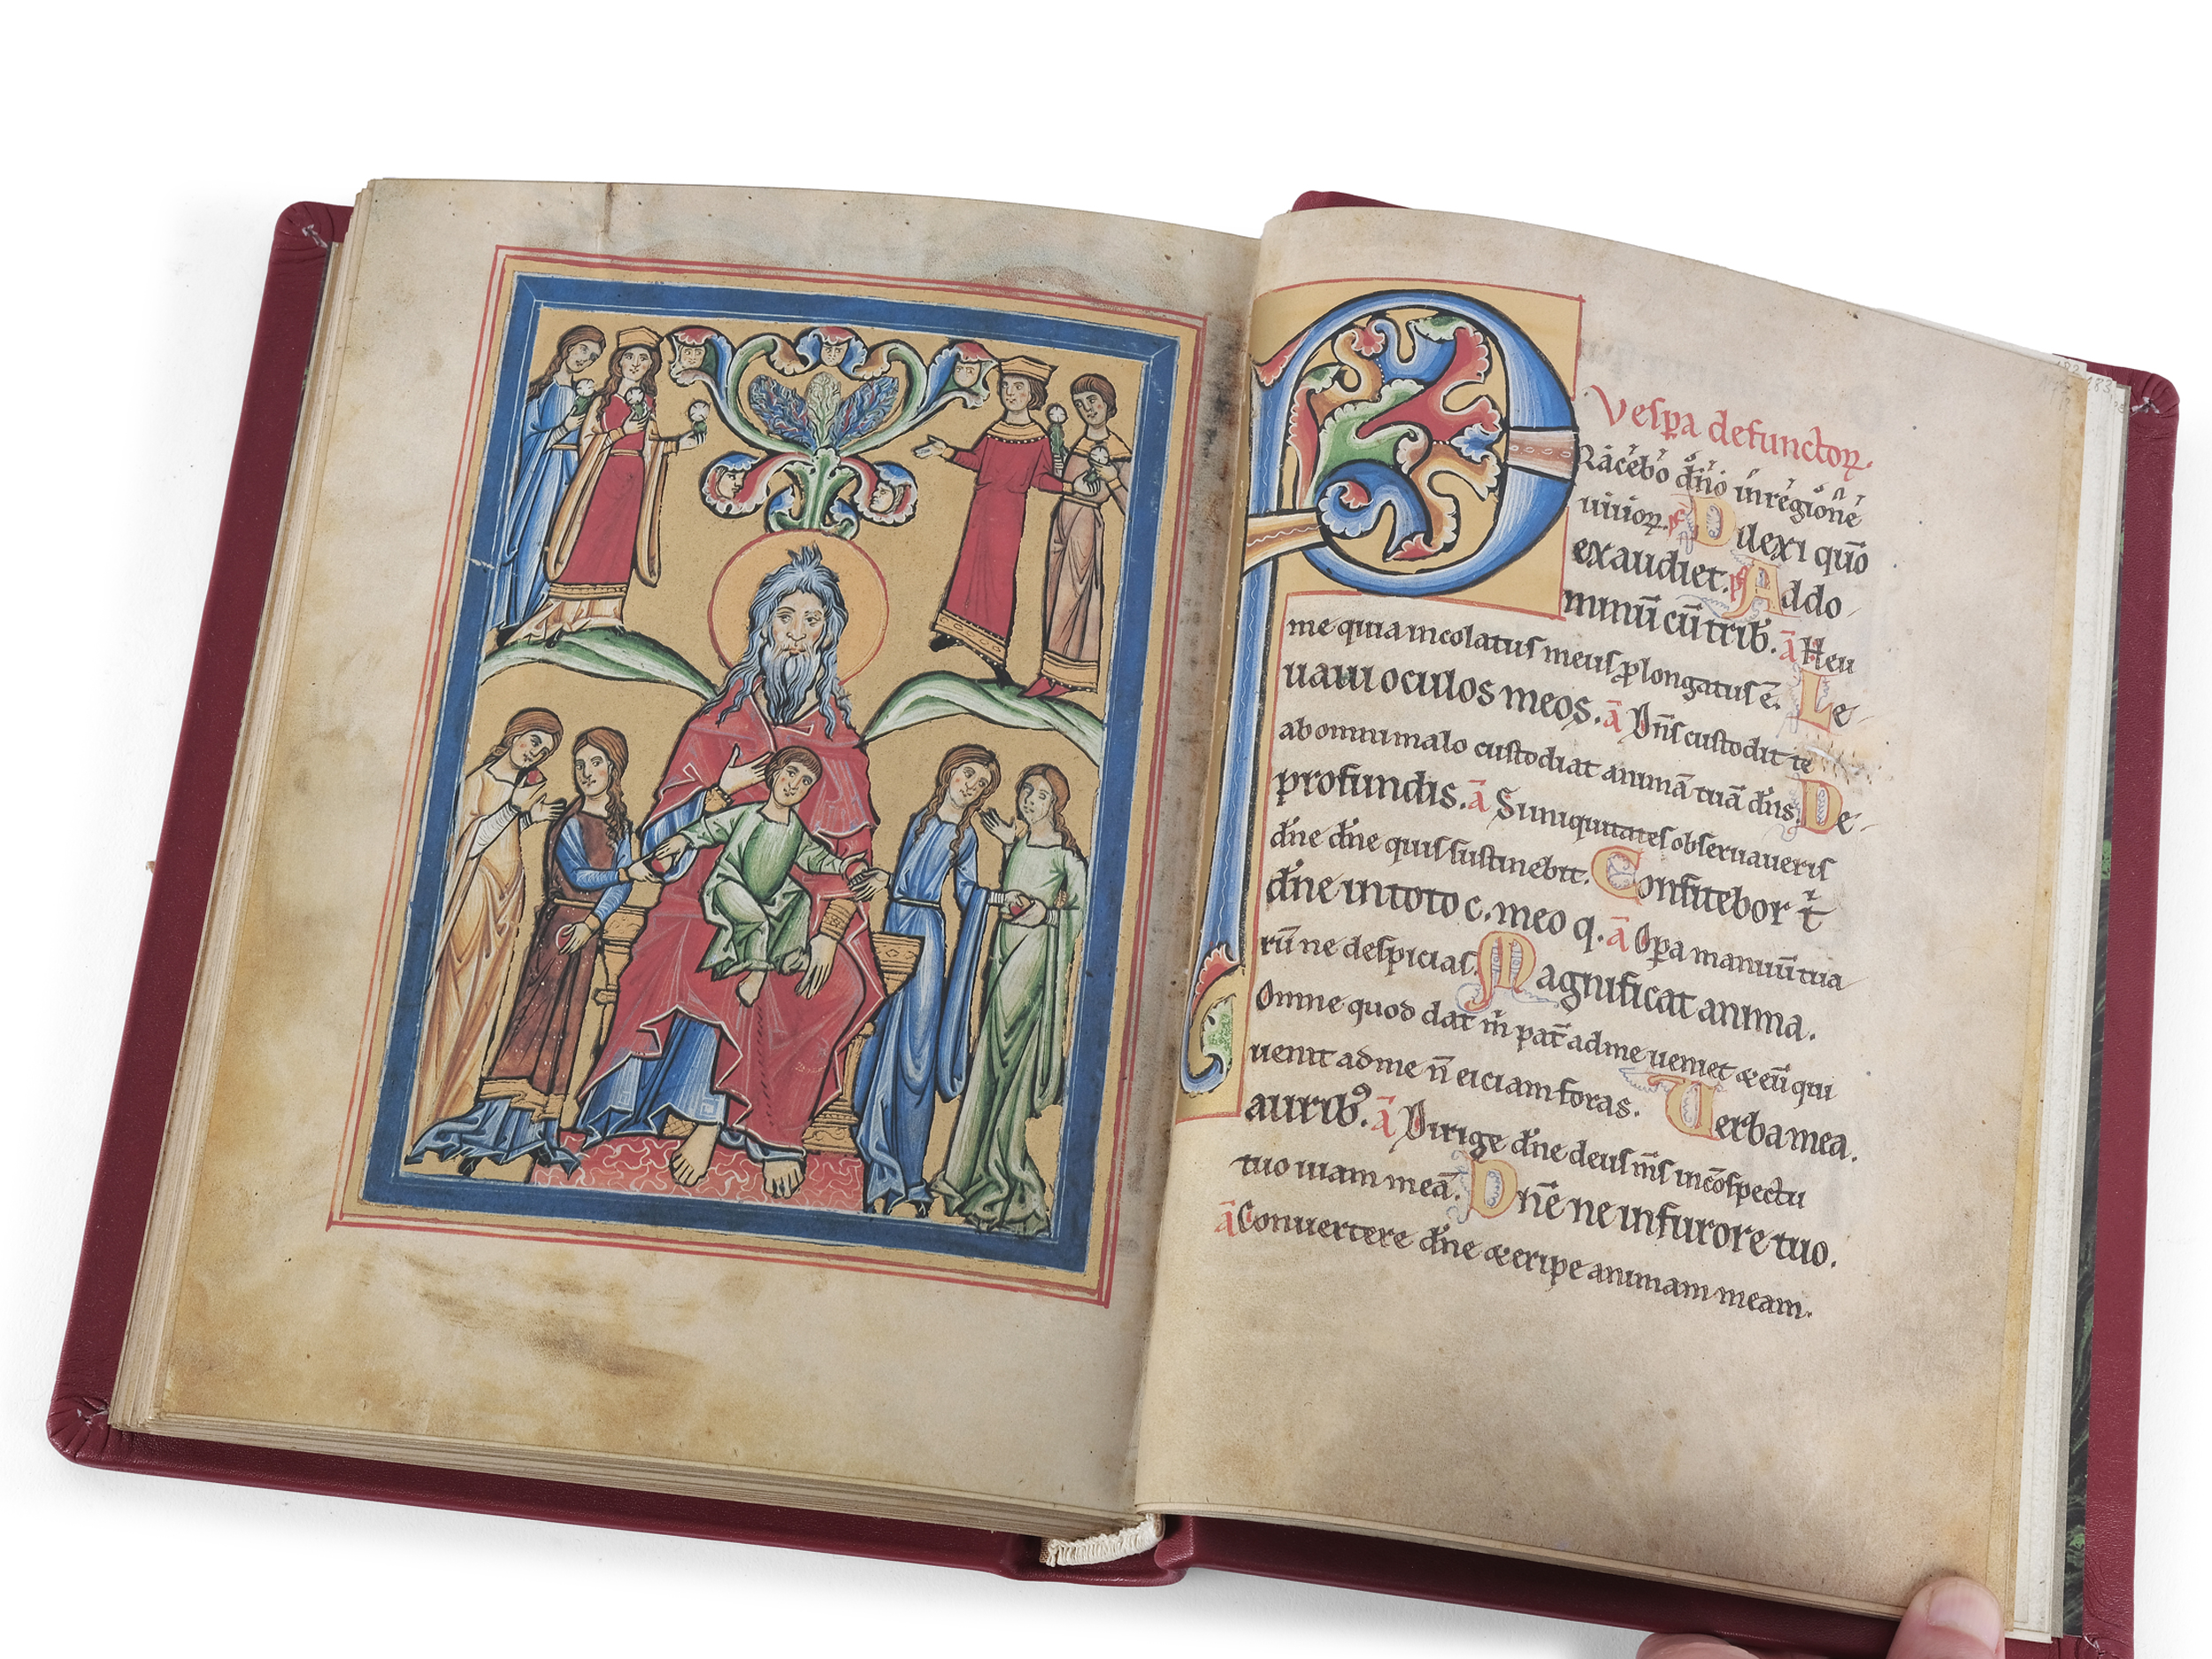 Vesp̄a defunctoꝝ.
Placebo dn̄o in regione
uiuoꝝ. ps Dilexi quō
exaudiet. ps Ad do
minū cū trib. ā Heu
me quia incolatus meus ꝓlongatus ē. Le
uaui oculos meos. ā Dn̄s custodit te
ab omni malo custodiat animā tuā dn̄s. De
profundis. ā Si iniquitates obseruaueris
dn̄e dn̄e quis sustinebit. Confitebor t̄
dn̄e in toto c. meo q. ā Opa manuū tua
rū ne despicias. Magnificat anima.
Omne quod dat m̄ pat̄ ad me ueniet & eū qui
uenit ad me n̄ eiciam foras. Uerba mea.
aurib⁹. ā Dirige dn̄e deus m̄s in cōspectu
tuo uiam meā. Dn̄e ne in furore tuo.
ā Conuertere dn̄e & eripe animam meam.